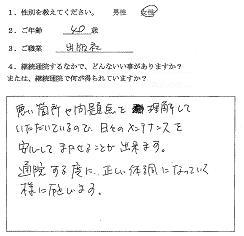 1．性別を教えてください。 男性 女性
2．ご年齢 40 歳
3．ご職業 出版社
4．継続通院するなかで、どんないい事がありますか？
または、継続通院で何が得られていますか？
悪い箇所や問題点を理解して
いただいているので、日々のメンテナンスを
安心してまかせることが出来ます。
通院する度に、正しい体調になっている
様に感じます。